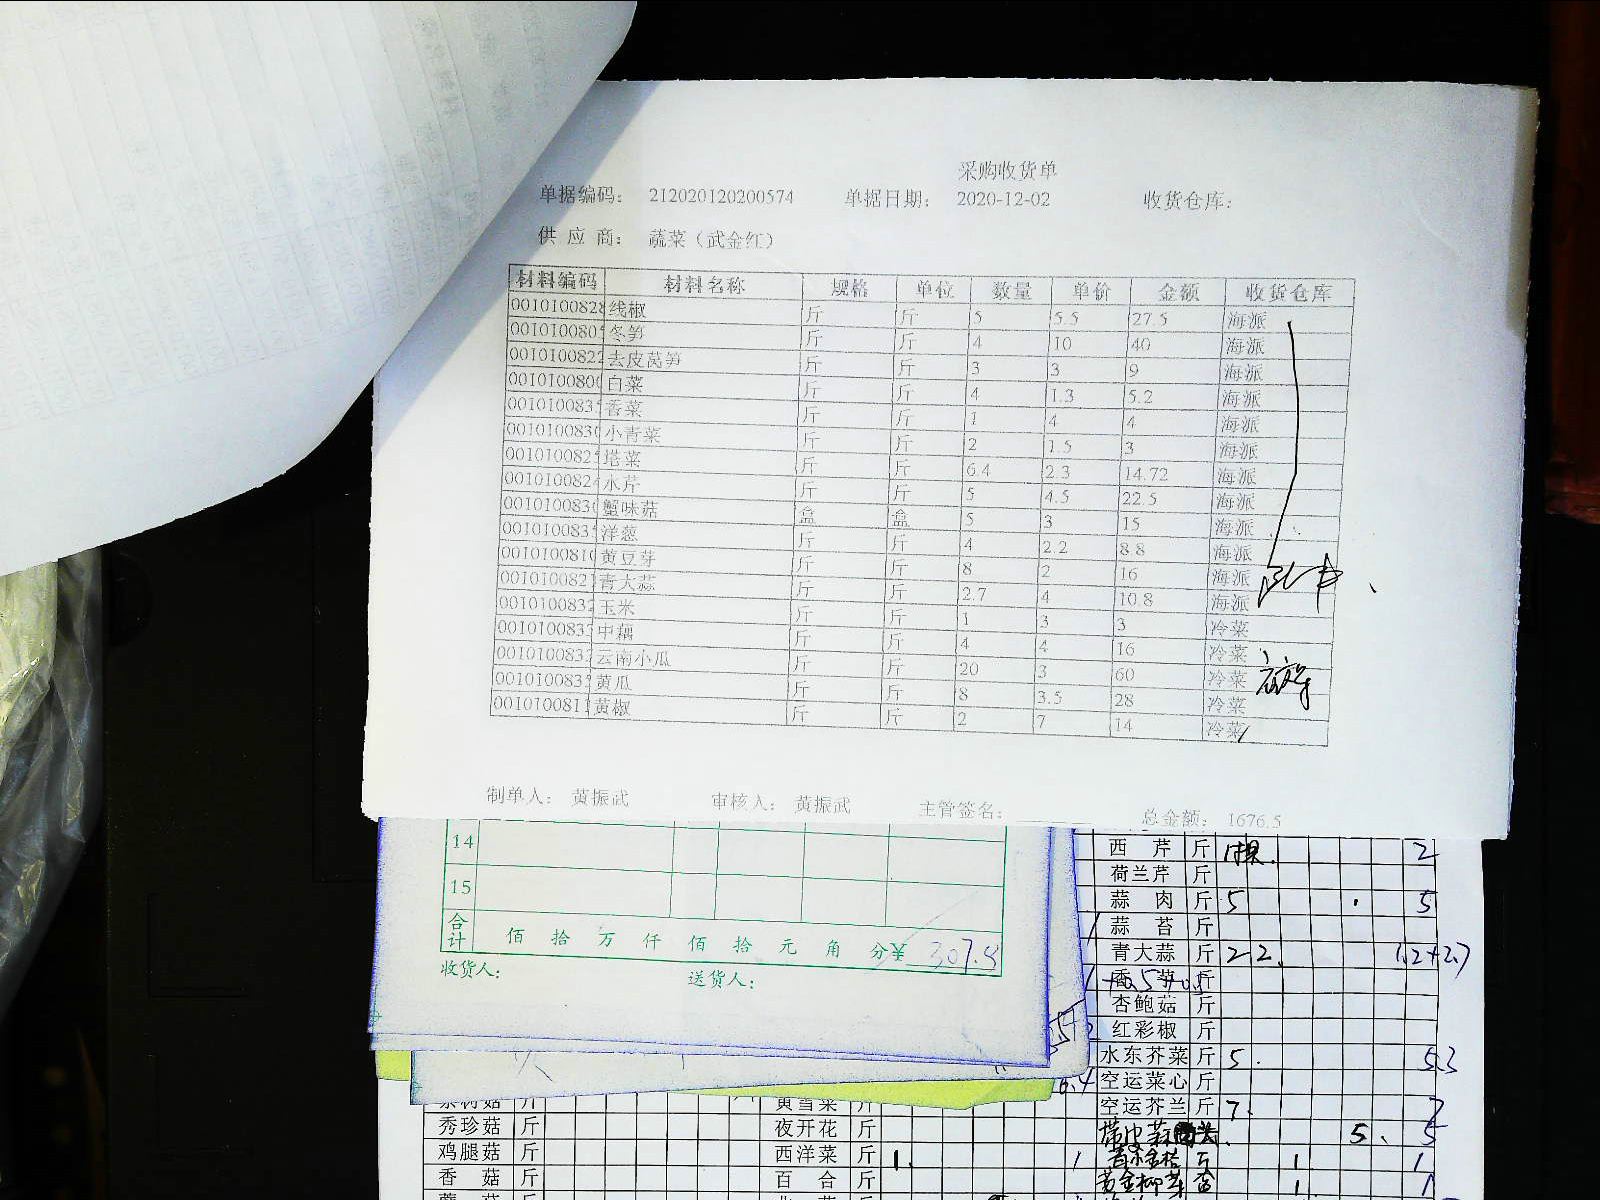 采购收货单
单据编码： 212020120200574 单据日期： 2020-12-02 收货仓库：
供 应 商： 蔬菜（武金红）
材料编码 材料名称 规格 单位 数量 单价 金额 收货仓库
001010082 线椒 斤 斤 5 5.5 27.5 海派
001010080 冬笋 斤 斤 4 10 40 海派
001010082 去皮莴笋 斤 斤 3 3 9 海派
001010080 白菜 斤 斤 4 1.3 5.2 海派
001010083 香菜 斤 斤 1 4 4 海派
001010083 小青菜 斤 斤 2 1.5 3 海派
001010082 塔菜 斤 斤 6.4 2.3 14.72 海派
001010082 水芹 斤 斤 5 4.5 22.5 海派
001010083 蟹味菇 盒 盒 5 3 15 海派
001010083 洋葱 斤 斤 4 2.2 8.8 海派
001010081 黄豆芽 斤 斤 8 2 16 海派
001010082 青大蒜 斤 斤 2.7 4 10.8 海派
001010083 玉米 斤 斤 1 3 3 冷菜
001010083 中藕 斤 斤 4 4 16 冷菜
001010083 云南小瓜 斤 斤 20 3 60 冷菜
001010083 黄瓜 斤 斤 8 3.5 28 冷菜
001010081 黄椒 斤 斤 2 7 14 冷菜
制单人： 黄振武 审核人： 黄振武 主管签名： 总金额： 1676.5
14
15
合计 佰 拾 万 仟 佰 拾 元 角 分¥ 307.8
收货人： 送货人：
西 芹 斤 2
荷兰芹 斤
蒜 肉 斤 5 5
蒜 苔 斤
青大蒜 斤 22 1.2+2.7
斤
杏鲍菇 斤
红彩椒 斤
水东芥菜 斤 5. 5.3
空运菜心 斤
6.4
空运芥兰 斤 7. 7
5. 5
1 1
1 1
黄雪菜 斤
秀珍菇 斤 夜开花 斤
鸡腿菇 斤 西洋菜 斤 1. 1
香 菇 斤 百 合 斤